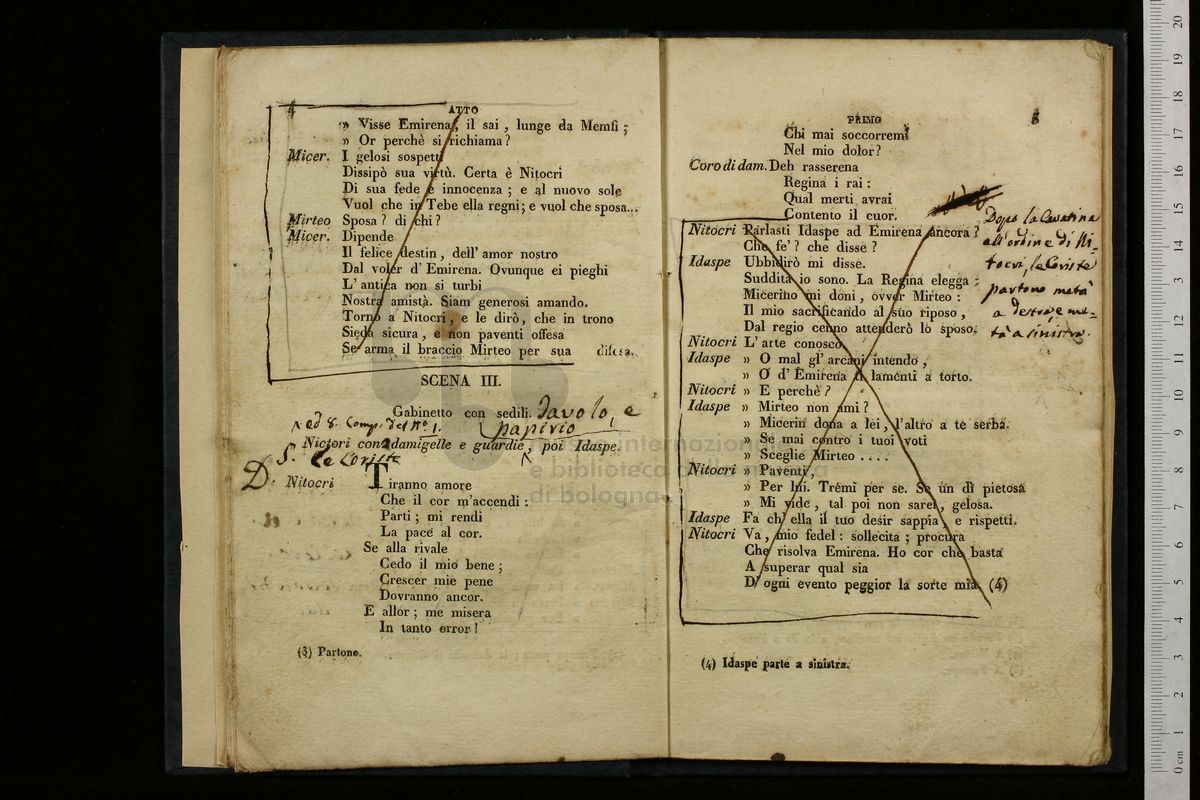 4
ATTO
» Visse Emirena, il sai, lunge da Memfi;
» Or perchè si richiama?
Micer. I gelosi sospetti
Dissipò sua virtù. Certa è Nitocri
Di sua fede e innocenza; e al nuovo sole
Vuol che in Tebe ella regni; e vuol che sposa...
Mirteo Sposa? di chi?
Micer. Dipende
Il felice destin, dell' amor nostro
Dal voler d' Emirena. Ovunque ei pieghi
L' antica non si turbi
Nostra amistà. Siam generosi amando.
Torno a Nitocri, e le dirò, che in trono
Sieda sicura, e non paventi offesa
Se arma il braccio Mirteo per sua difesa.
SCENA III.
Gabinetto con sedili. Tavolo, e
papirio
ed 8. Comp. del N.° 1.
Nictori con damigelle e guardie, poi Idaspe.
S. le Coriste
D. Nitocri Tiranno amore
Che il cor m'accendi:
Parti; mi rendi
La pace al cor.
Se alla rivale
Cedo il mio bene;
Crescer mie pene
Dovranno ancor.
E allor; me misera
In tanto error!
(3) Partono.
PRIMO
5
Chi mai soccorremi
Nel mio dolor?
Coro di dam. Deh rasserena
Regina i rai:
Qual merti avrai
Contento il cuor.
Nitocri Parlasti Idaspe ad Emirena ancora?
Che fe'? che disse?
Idaspe Ubbidirò mi disse.
Suddita io sono. La Regina elegga:
Micerino mi doni, ovver Mirteo:
Il mio sacrificando al suo riposo,
Dal regio cenno attenderò lo sposo.
Nitocri L' arte conosco.
Idaspe » O mal gl' arcani intendo,
» O d' Emirena ti lamenti a torto.
Nitocri » E perchè?
Idaspe » Mirteo non ami?
» Micerin dona a lei, l'altro a te serba.
» Se mai contro i tuoi voti
» Sceglie Mirteo ....
Nitocri » Paventi,
» Per lui. Tremi per se. Se un dì pietosa
» Mi vide, tal poi non sarei, gelosa.
Idaspe Fa ch' ella il tuo desir sappia, e rispetti.
Nitocri Va, mio fedel: sollecita; procura
Che risolva Emirena. Ho cor che basta
A superar qual sia
D' ogni evento peggior la sorte mia (4)
(4) Idaspe parte a sinistra.
Dopo la Cavatina
all'ordine di Ni-
tocri, le Coriste
partono metà
a destra, e me-
tà a sinistra.
museo internazionale
e biblioteca della musica
di bologna
0 cm 1 2 3 4 5 6 7 8 9 10 11 12 13 14 15 16 17 18 19 20